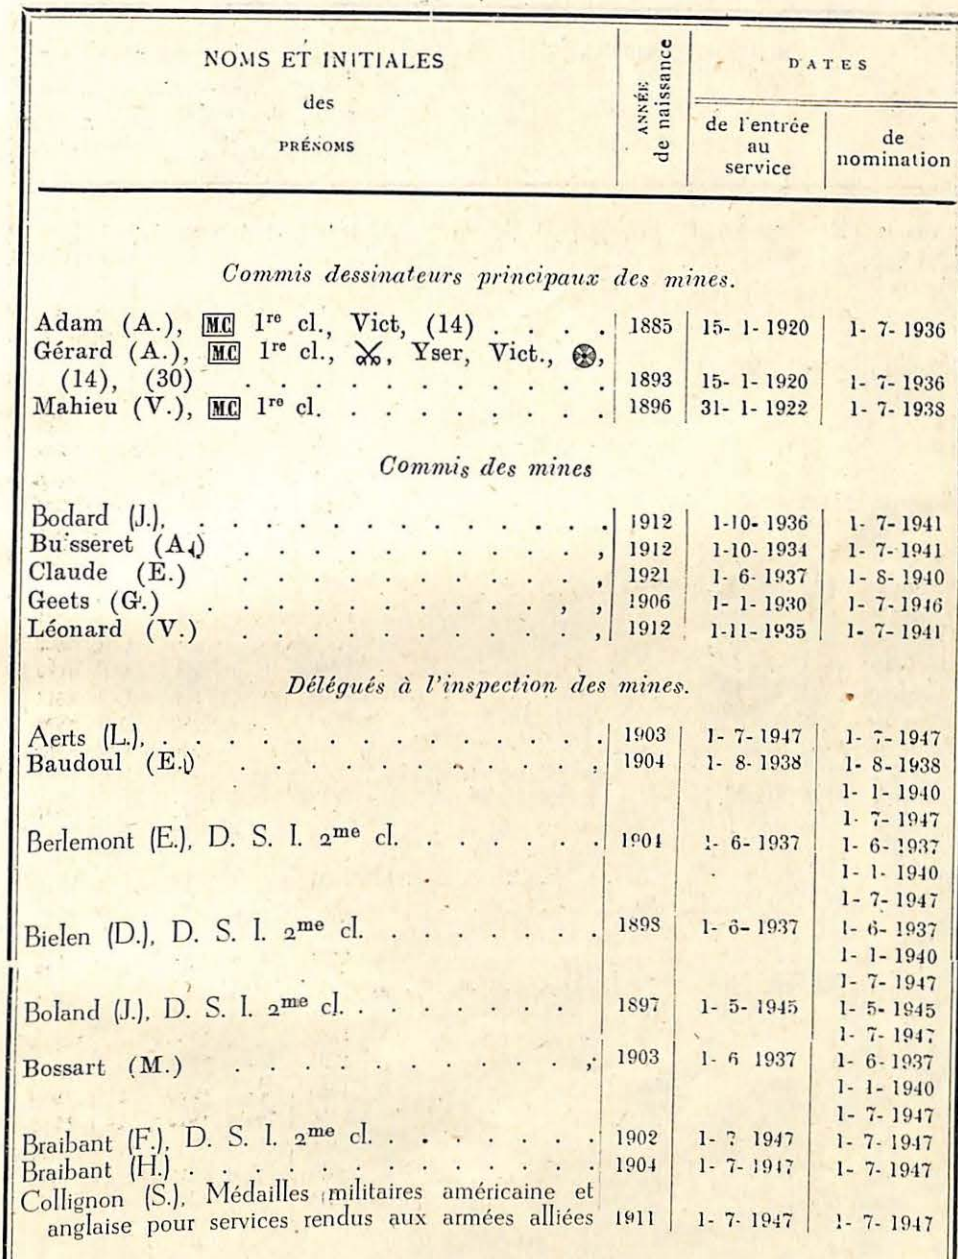 NOMS ET INITIALES
des
PRÉNOMS
ANNÉE
de naissance
DATES
de l'entrée
au
service
de
nomination
Commis dessinateurs principaux des mines.
Adam (A.), MC 1re cl., Vict, (14) . . . . 1885 15- 1- 1920 1- 7- 1936
Gérard (A.), MC 1re cl., ⚔, Yser, Vict.,
(14), (30) . . . . . . . . . . 1893 15- 1- 1920 1- 7- 1936
Mahieu (V.), MC 1re cl. . . . . . . . . 1896 31- 1- 1922 1- 7- 1938
Commis des mines
Bodard (J.), . . . . . . . . . . . . . 1912 1-10- 1936 1- 7-1941
Bu sseret (A.) . . . . . . . . . . . , 1912 1-10- 1934 1- 7-1941
Claude (E.) . . . . . . . . . . . , 1921 1- 6- 1937 1- 8- 1940
Geets (G.) . . . . . . . . . . , , 1906 1- 1- 1930 1- 7- 1946
Léonard (V.) . . . . . . . . . . . , 1912 1-11-1935 1- 7- 1941
Délégués à l'inspection des mines.
Aerts (L.), . . . . . . . . . . . . . 1903 1- 7-1947 1- 7-1947
Baudoul (E.) . . . . . . . . . . . , 1904 1- 8-1938 1- 8-1938
1- 1- 1940
1- 7- 1947
Berlemont (E.), D. S. I. 2me cl. . . . . . . 1904 1- 6- 1937 1- 6- 1937
1- 1- 1940
1- 7- 1947
Bielen (D.), D. S. I. 2me cl. . . . . . . . 1898 1- 6- 1937 1- 6- 1937
1- 1- 1940
1- 7- 1947
Boland (J.), D. S. I. 2me cl. . . . . . . 1897 1- 5- 1945 1- 5- 1945
1- 7- 1947
Bossart (M.) . . . . . . . . . . . , 1903 1- 6 1937 1- 6- 1937
1- 1- 1940
1- 7- 1947
Braibant (F.), D. S. I. 2me cl. . . . . . . 1902 1- 1947 1- 7- 1947
Braibant (H.) . . . . . . . . . . . . 1904 1- 7- 1947 1- 7- 1947
Collignon (S.), Médailles militaires américaine et
anglaise pour services rendus aux armées alliées 1911 1- 7- 1947 1- 7- 1947